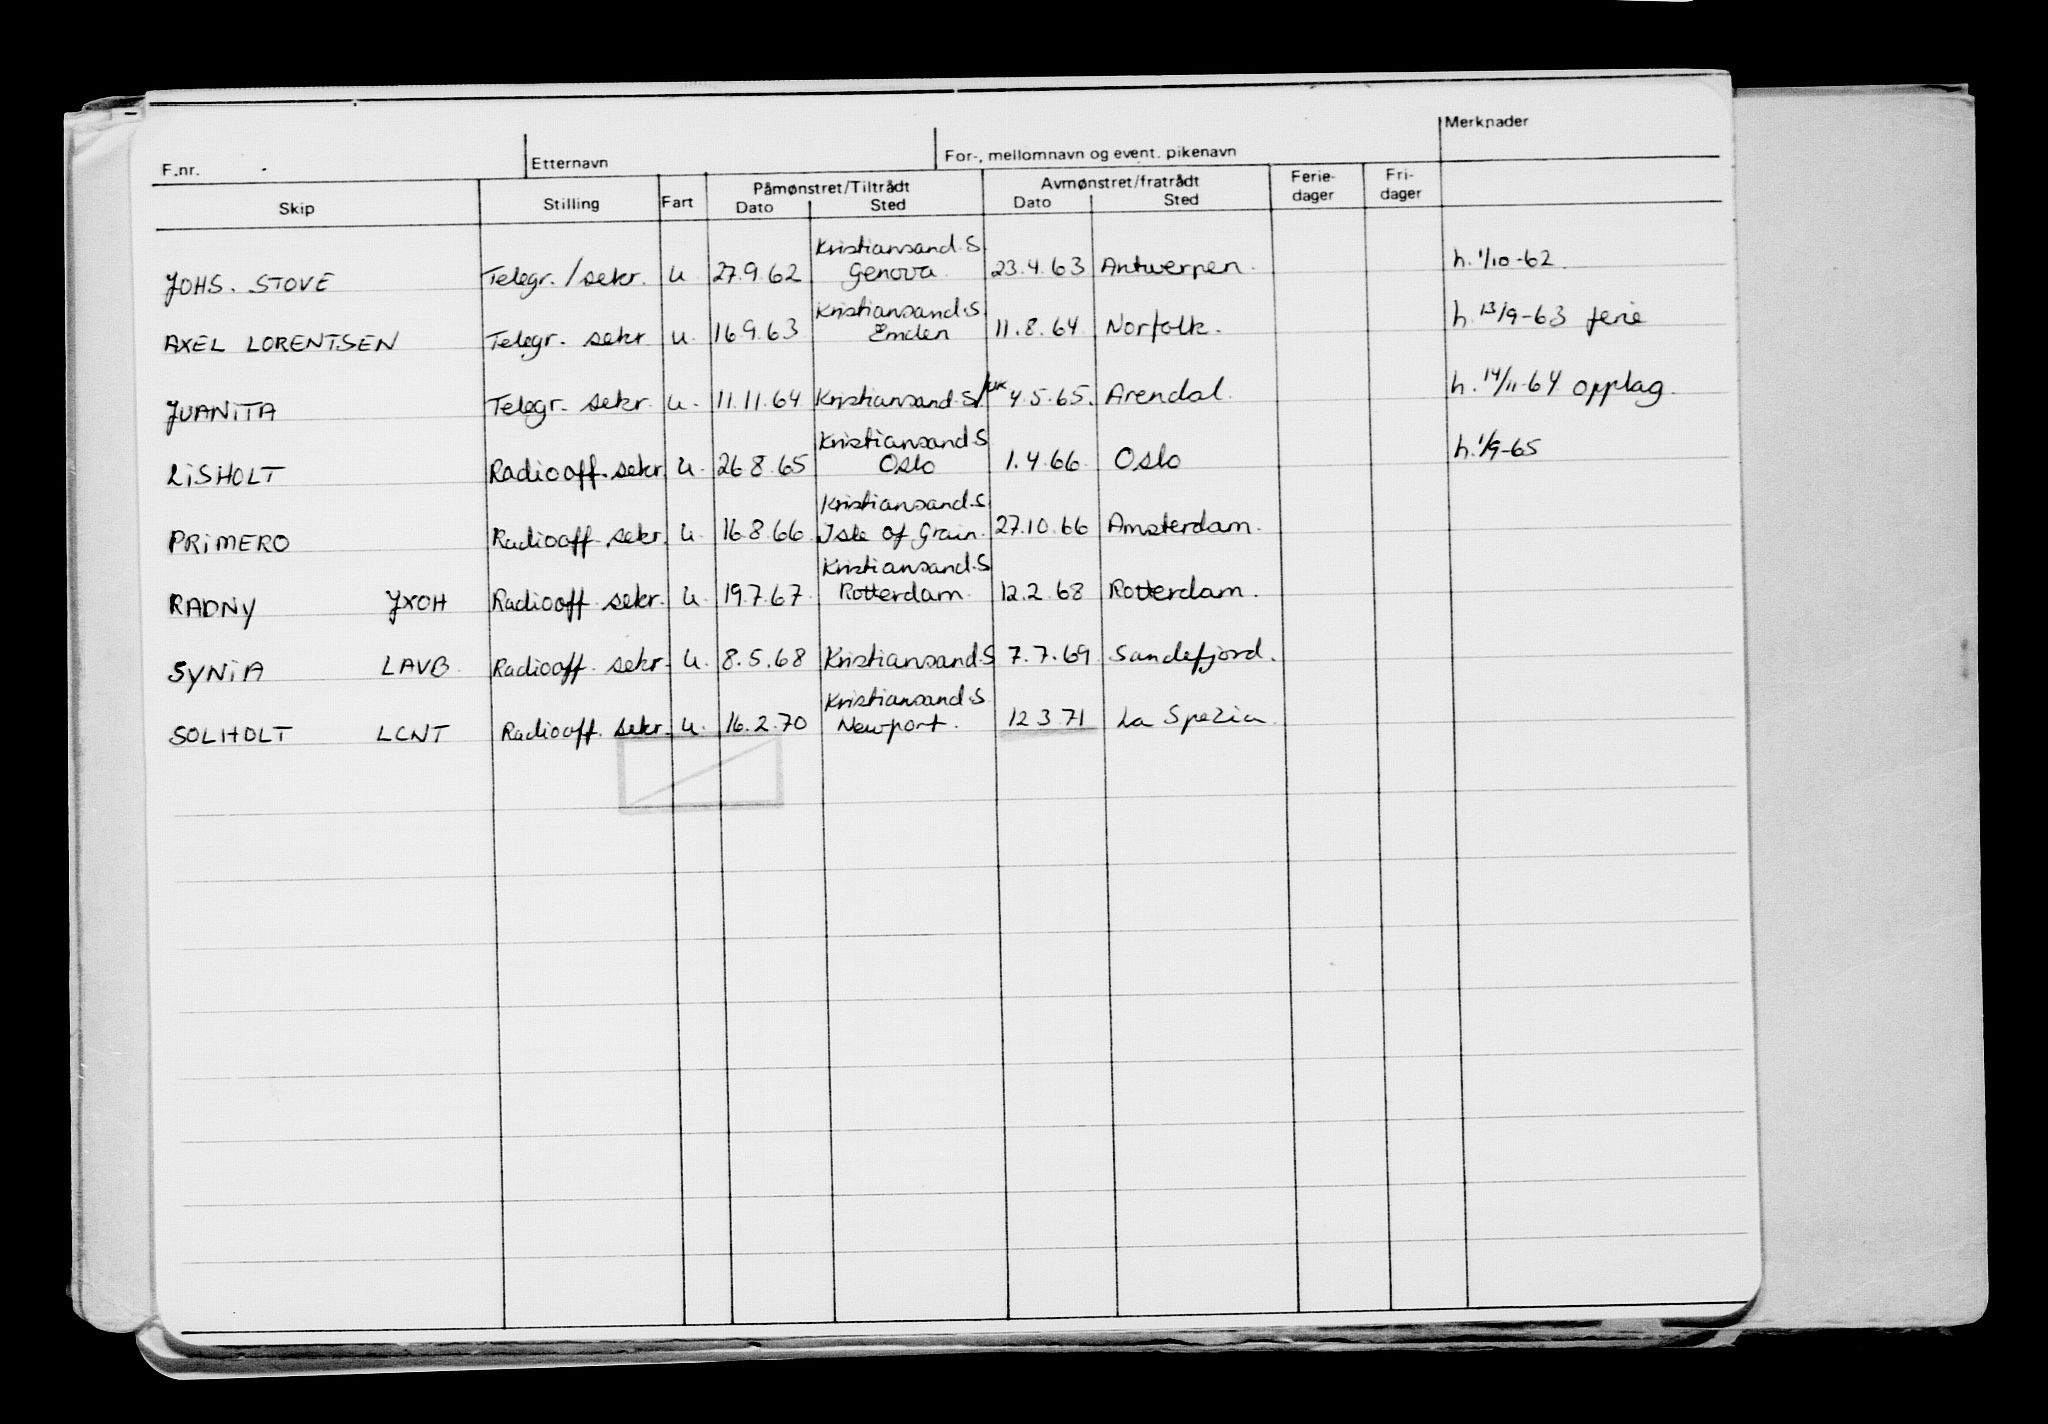 F.nr. Etternavn For-, mellomnavn og event. pikenavn Merknader
Skip Stilling Fart Påmønstret/Tiltrådt Avmønstret/fratrådt Ferie- Fri-
Dato Sted Dato Sted dager dager
Kristiansand.S
JOHS. STOVE Telegr./sekr. u. 27.9.62 Genova. 23.4.63 Antwerpen. h. 1/10-62
Kristiansand.S
AXEL LORENTSEN Telegr. sekr u. 16.9.63 Emden 11.8.64 Norfolk. h. 13/9-63 ferie
JUANITA Telegr. sekr. u. 11.11.64 Kristiansand.S 4.5.65. Arendal. h. 14/11-64 opplag.
Kristiansand.S
LISHOLT Radiooff. sekr. u. 26.8.65 Oslo 1.4.66 Oslo h. 1/9-65
Kristiansand.S
PRIMERO Radiooff. sekr. u. 16.8.66 Isle of Grain. 27.10.66 Amsterdam.
Kristiansand.S
RADNY JXOH Radiooff. sekr. u. 19.7.67 Rotterdam. 12.2.68 Rotterdam.
SYNIA LAVB Radiooff. sekr. u. 8.5.68 Kristiansand.S 7.7.69 Sandefjord.
Kristiansand.S
SOLHOLT LCNT Radiooff. sekr. u. 16.2.70 Newport. 12.3.71 La Spezia.